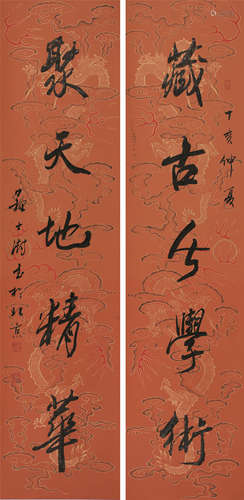 藏古今學術
丁亥仲夏
聚天地精華
蘇士澍書於北京